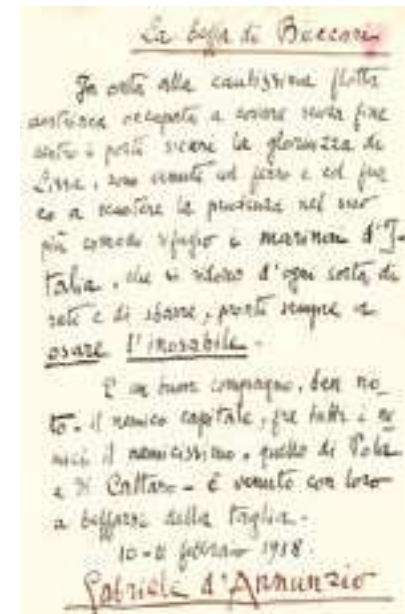 La beffa di Buccari
In onta alla cautissima flotta
austriaca occupata a covare senza fine
dentro i porti sicuri la gloriuzza di
Lissa, sono venuti col ferro e col fuo
co a scuotere la prudenza nel suo
più comodo rifugio i marinai d'I-
talia, che si ridono d'ogni sorta di
reti e di sbarre, pronti sempre a
osare l'inosabile.
E un buon compagno, ben no-
to - il nemico capitale, fra tutti i ne
mici il nemicissimo, quello di Pola
e di Cattaro - è venuto con loro
a beffarsi della taglia.
10-11 febbraio 1918.
Gabriele d'Annunzio